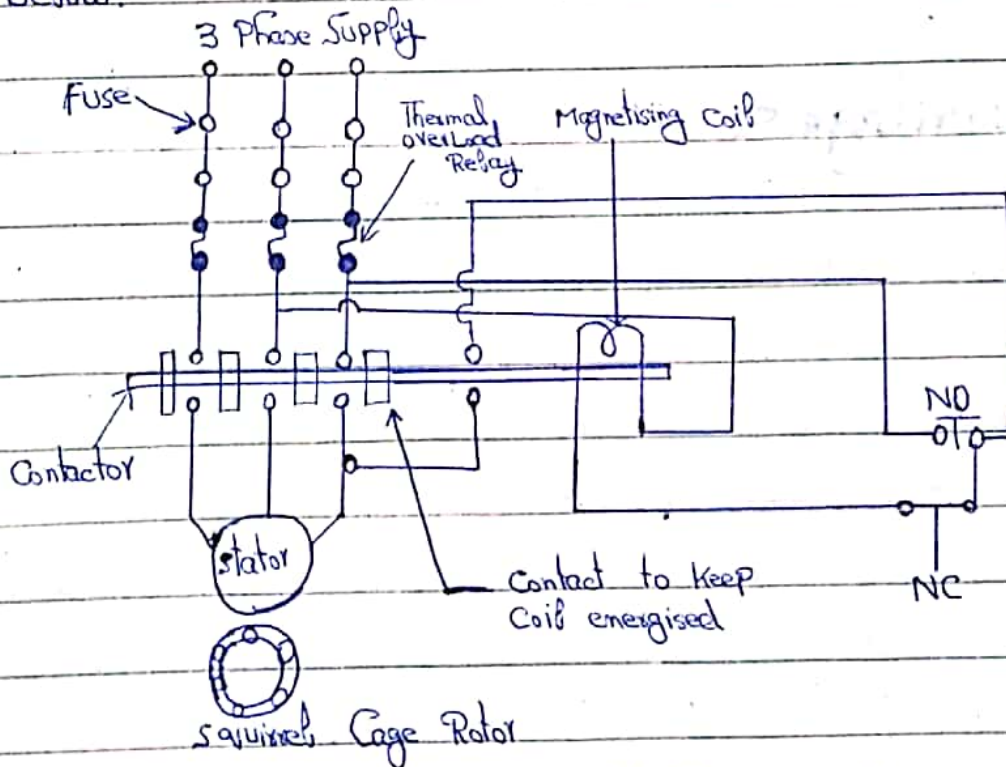 3 Phase Supply
Fuse
Thermal
overLoad
Relay
Magnetising Coil
NO
Contactor
stator
NC
Contact to Keep
Coil energised
squirrel Cage Rotor